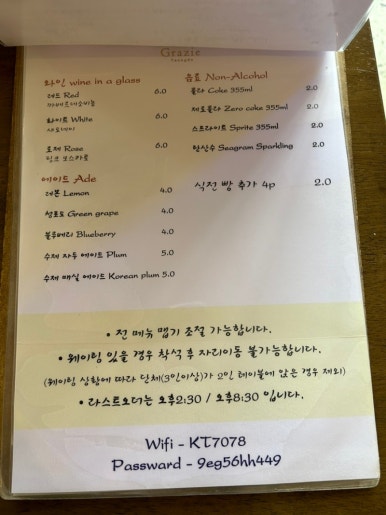 Grazie
와인 wine in a glass
레드 Red 6.0
까베르네소비뇽
화이트 White 6.0
샤도네이
로제 Rose 6.0
핑크 모스카토
에이드 Ade
레몬 Lemon 4.0
청포도 Green grape 4.0
블루베리 Blueberry 4.0
수제 자두 에이드 Plum 5.0
수제 매실 에이드 Korean plum 5.0
음료 Non-Alcohol
콜라 Coke 355ml 2.0
제로콜라 Zero coke 355ml 2.0
스프라이트 Sprite 355ml 2.0
탄산수 Seagram Sparkling 2.0
식전 빵 추가 4p 2.0
• 전 메뉴 맵기 조절 가능합니다.
• 웨이팅 있을 경우 착석 후 자리이동 불가능합니다.
(웨이팅 상황에 따라 단체(3인이상)가 2인 테이블에 앉은 경우 제외)
• 라스트오더는 오후2:30 / 오후8:30 입니다.
Wifi - KT7078
Passward - 9eg56hh449